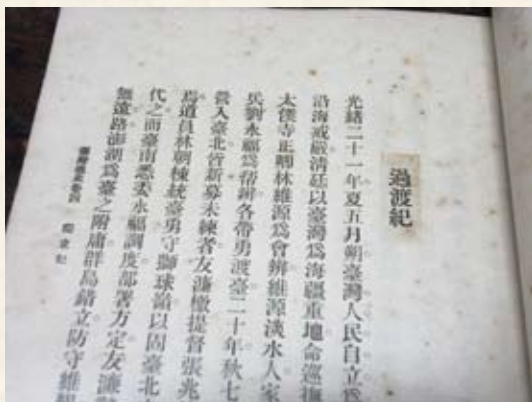 過渡紀
光緒二十一年夏五月朔臺灣人民自立爲
沿海戒嚴清廷以臺灣爲海疆重地命巡撫
太僕寺正卿林維源爲會辦維源淡水人家
兵劉永福爲幫辦各帶勇渡臺二十年秋七
營入臺北皆新募未練者友濂檄提督張兆
焉道員林朝棟統臺勇守獅球嶺以固臺北
代之而臺南悉委永福調度部署方定友濂
無遠路澎湖爲臺之附庸群島錯立防守維艱
臺灣通史卷四